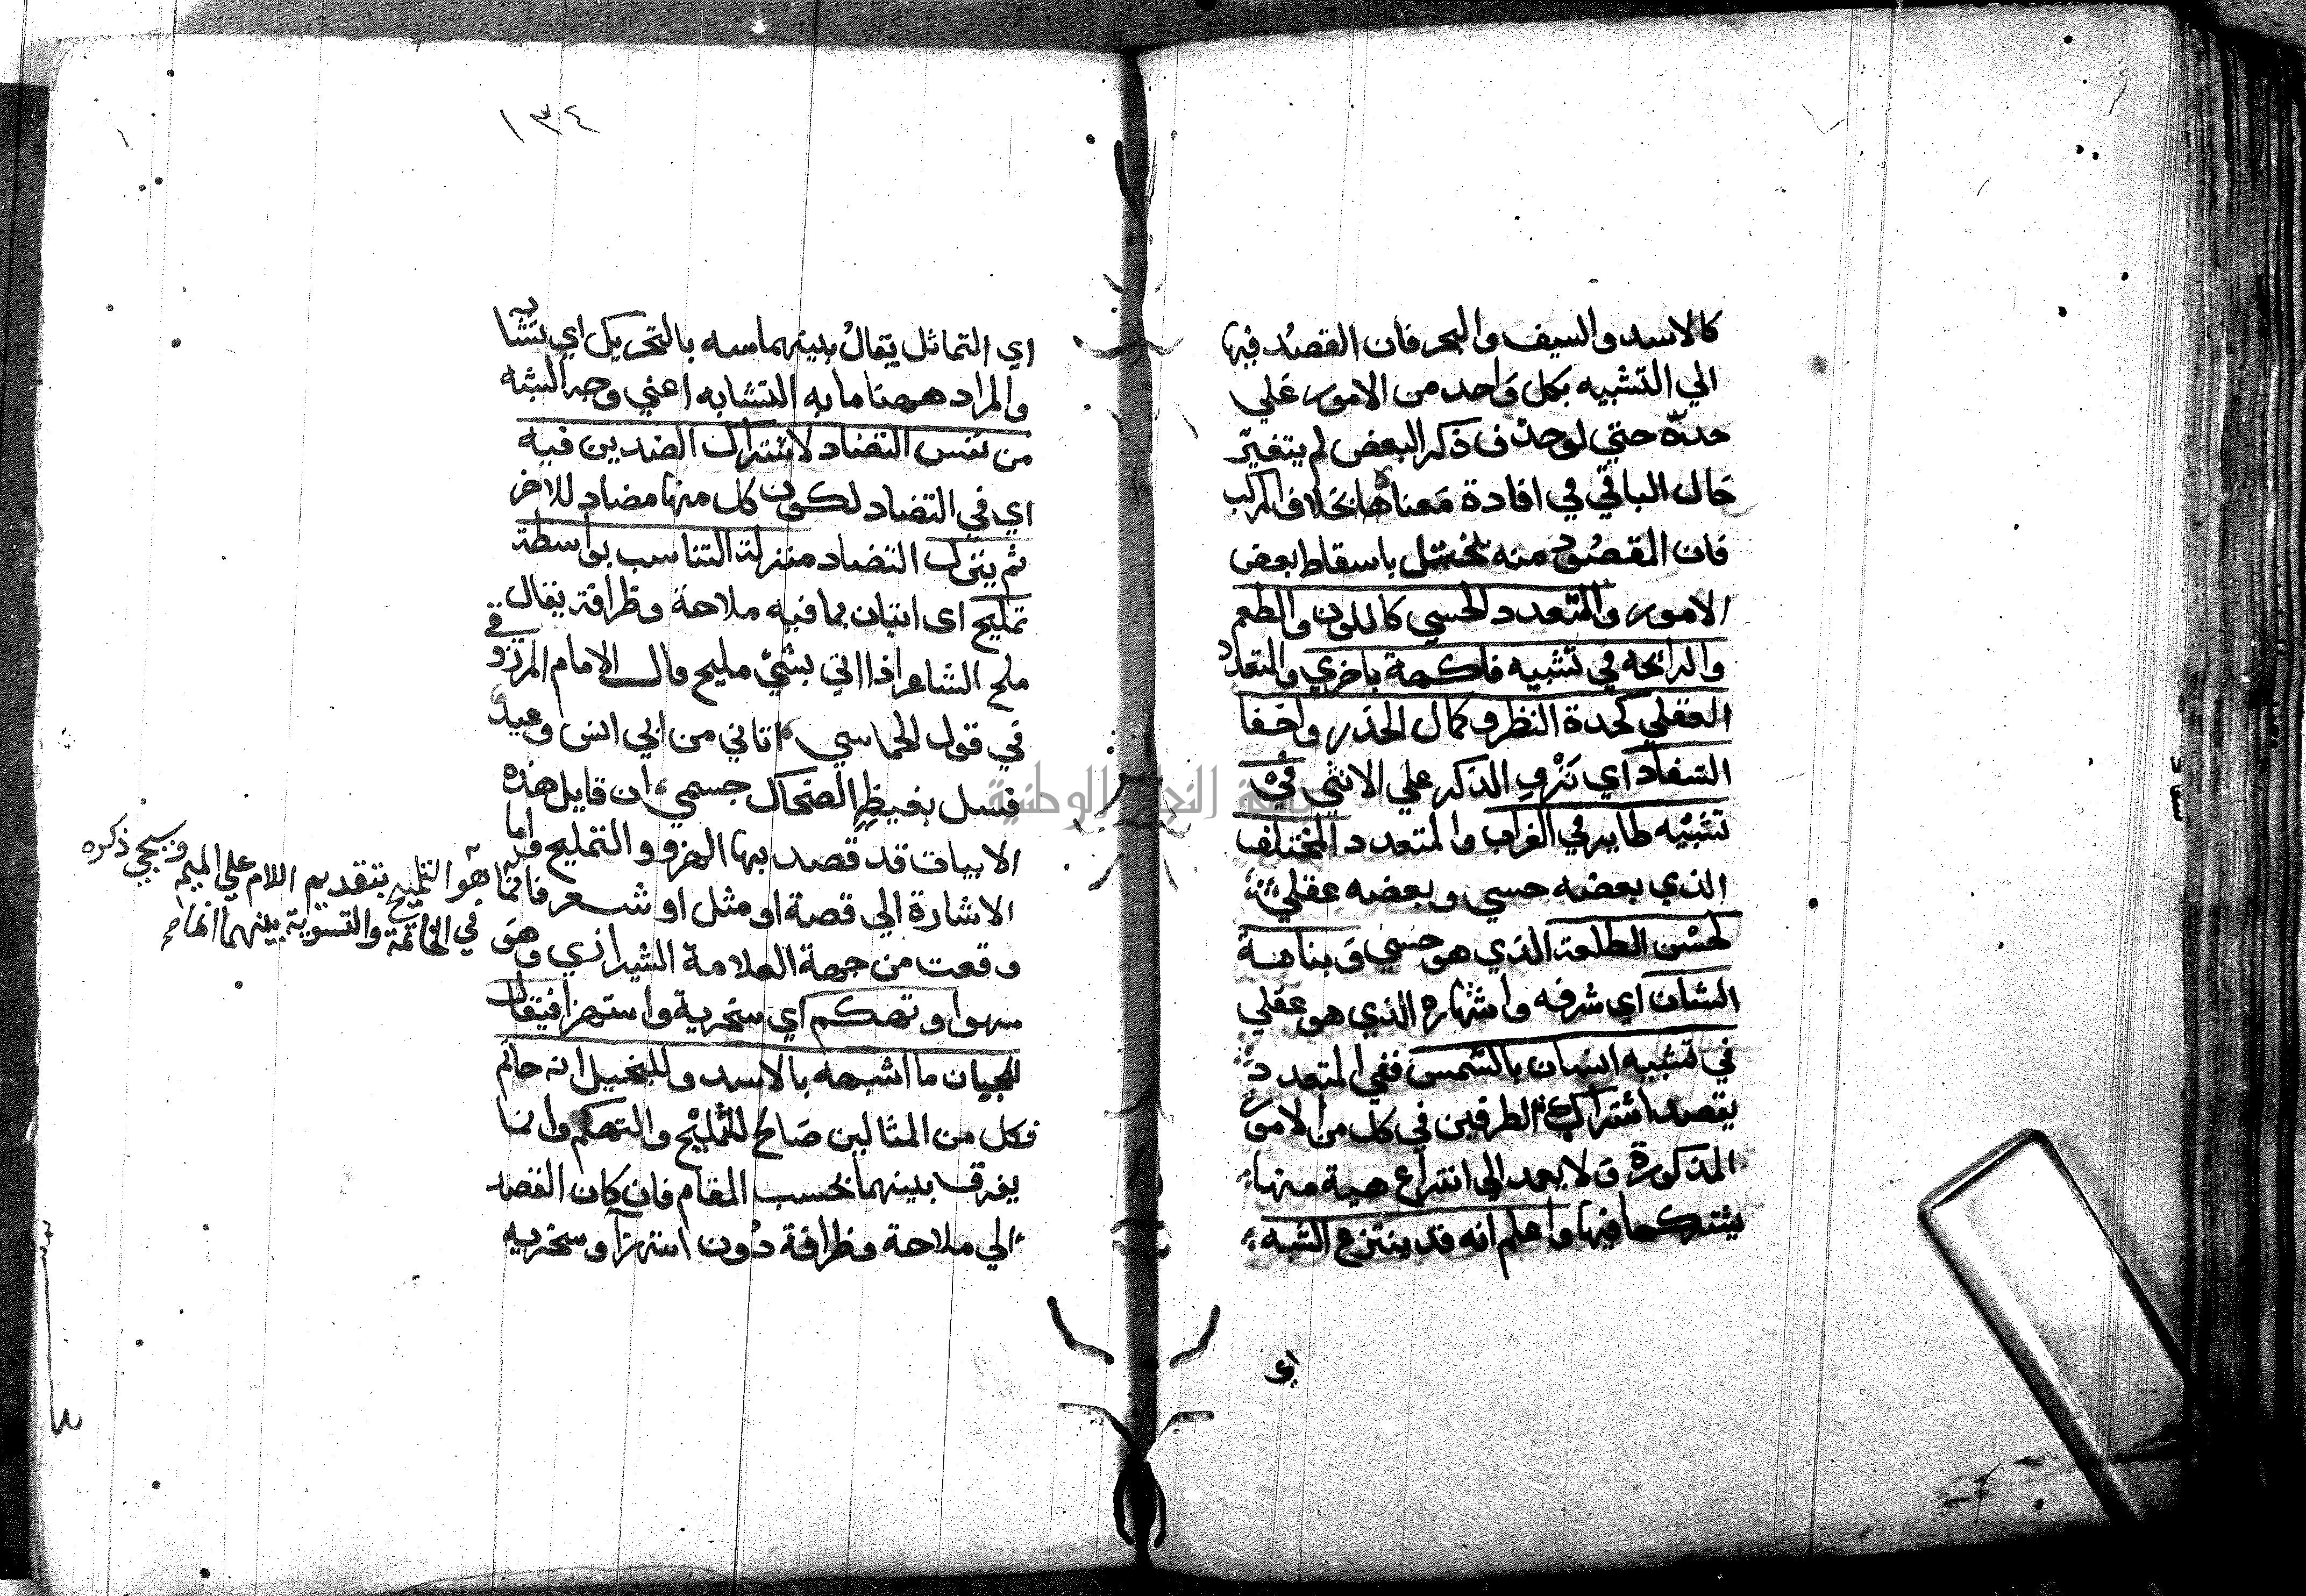 كالاسد والسيف والبحر فان القصد فيها
الي التشبيه بكل واحد من الامور علي
حدة حتي لو حذف ذكر البعض لم يتغير
حال الباقي في افادة معناها بخلاف المركب
فان المقصود منه يختل باسقاط بعض
الامور والمتعدد الحسي كاللون والطعم
والرائحه في تشبيه فاكهة باخري والمتعدد
العقلي كحدة النظر وكمال الحذر واخفا
السفاد اي نزو الذكر علي الانثي في
تشبيه طاير في الغراب والمتعدد المختلف
الذي بعضه حسي وبعضه عقلي
كحسن الطلعة الذي هو حسي وبناهة
الشان اي شرفه واشتهاره الذي هو عقلي
في تشبيه انسان بالشمس ففي المتعدد
يقصد اشتراك الطرفين في كل من الامور
المذكورة ولا يعمد الي انتزاع هية منها
يشتركها فيها واعلم انه قد ينتزع الشبه
اي
١٣٤
اي التماثل يقال بينهما شبه بالتحريك اي تشابه
والمراد ههنا ما به التشابه اعني وجه الشبه
من نفس التضاد لاشتراك الضدين فيه
اي في التضاد لكون كل منها مضاد للاخر
ثم ينزل التضاد منزلة التناسب بواسطة
تمليح اى اتيان بما فيه ملاحة وظرافة يقال
ملح الشاعر اذا اتي بشئ مليح وقال الامام المرزوقي
في قول الحماسي اتاني من ابي انس وعيد
فسل بغيظ الضحاك جسمي ان قايل هذه
الابيات قد قصد بها الهزو والتمليح واما
الاشارة الي قصة او مثل او شعر فانما هو التلميح بتقديم اللام علي الميم وسيجي ذكره
في الخاتمة والتسوية بينهما انما
وقعت من جهة العلامة الشيرازي وهو
سهو او تهكم اي سخرية واستهزا فيقال
للجبان ما اشبهه بالاسد وللبخيل انه حاتم
فكل من المثالين صالح للتمليح والتهكم وانما
يفرق بينهما بحسب المقام فان كان القصد
الي ملاحة وظرافة دون استهزآ وسخريه